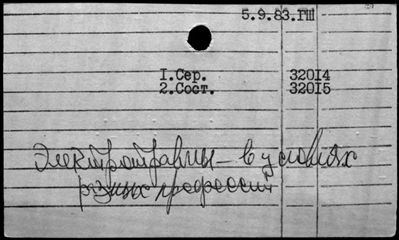 5.9.83.ГШ
I.Сер. 32014
2.Сост. 32015
Электротравмы – в условиях
разных профессий